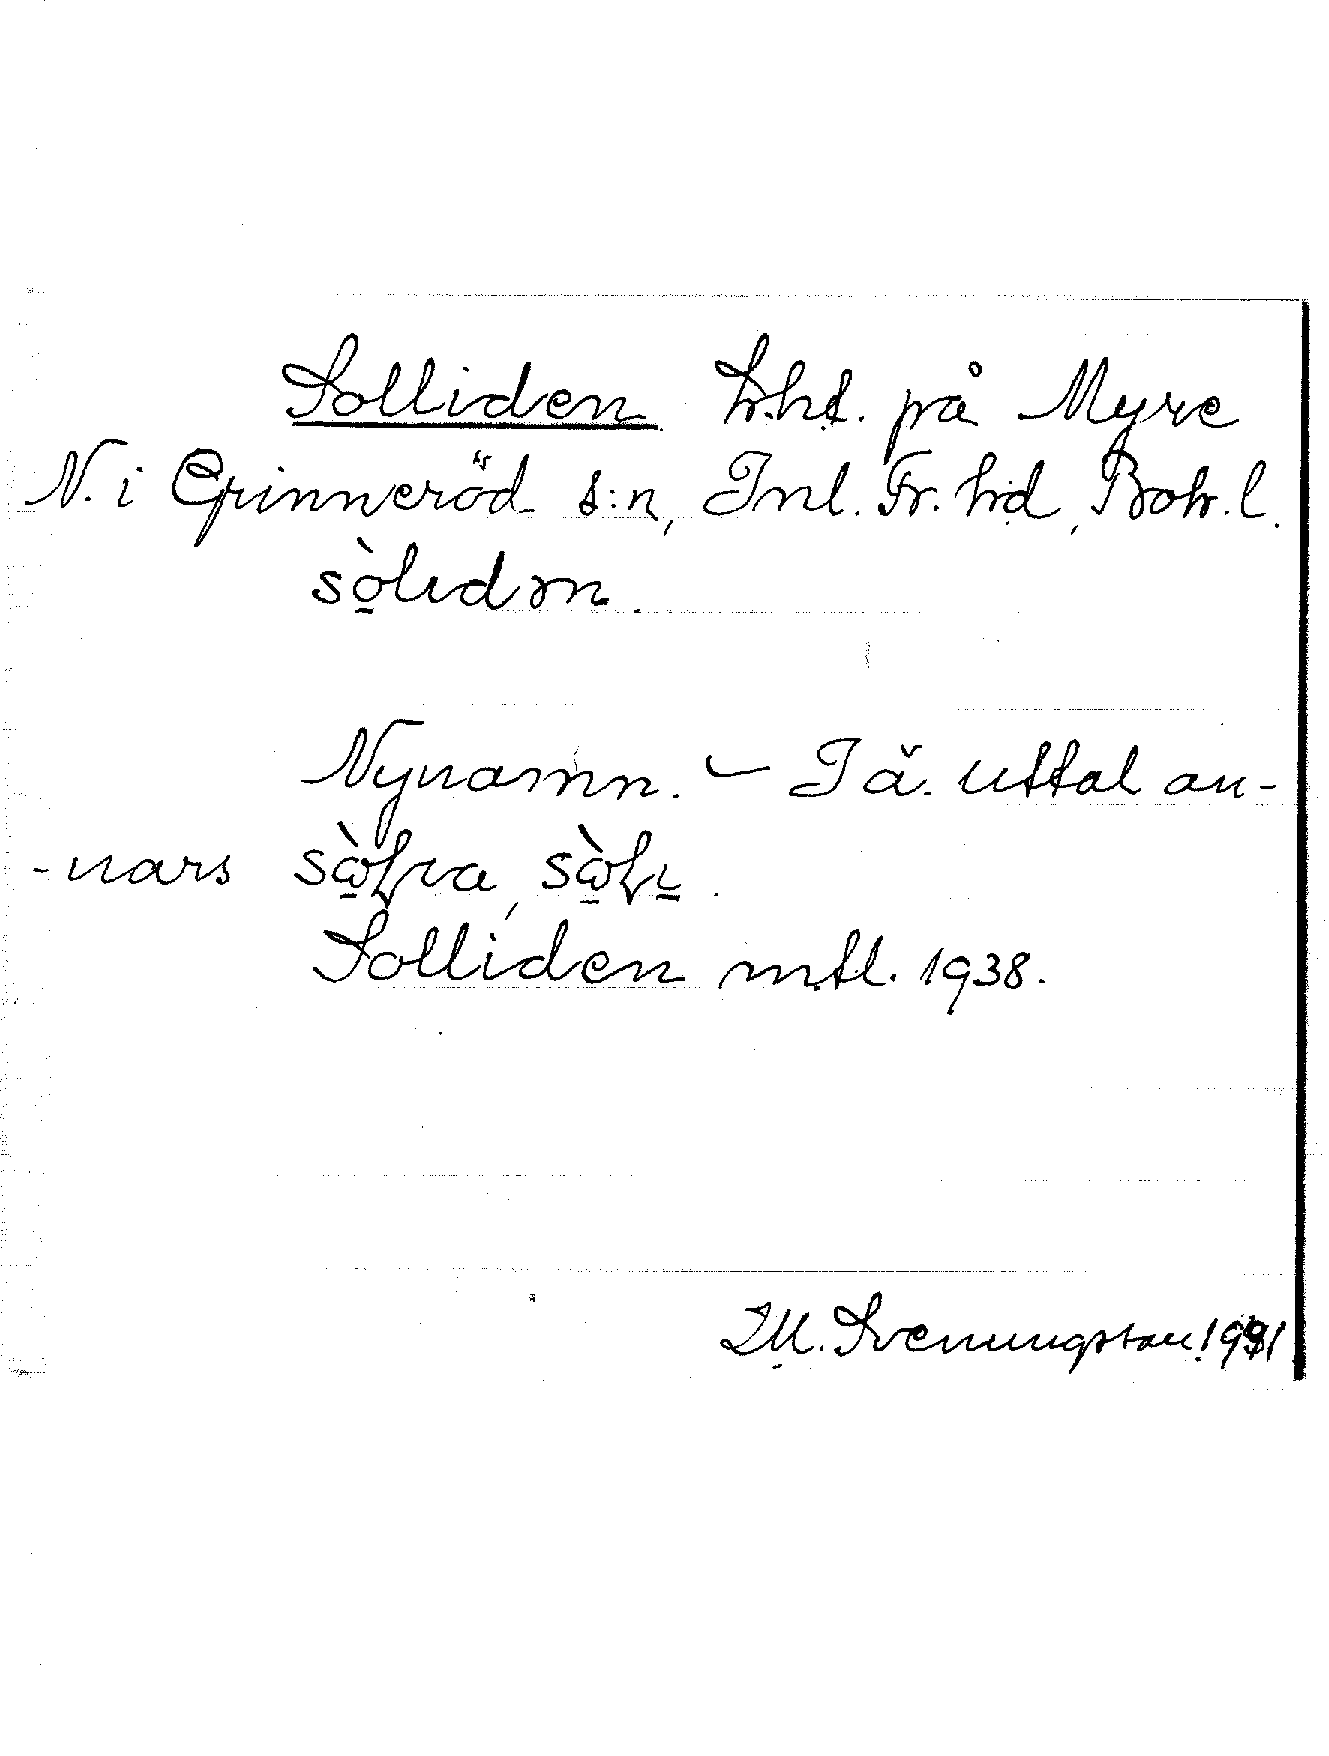 Solliden lht. på Myre
N. i Grinneröd s:n, Inl. Fr. hd, Boh. l.
sòlıdən.
Nynamn. – Jä. uttal an-
-nars
Solliden mtl. 1938.
M. Svenungsson 1991